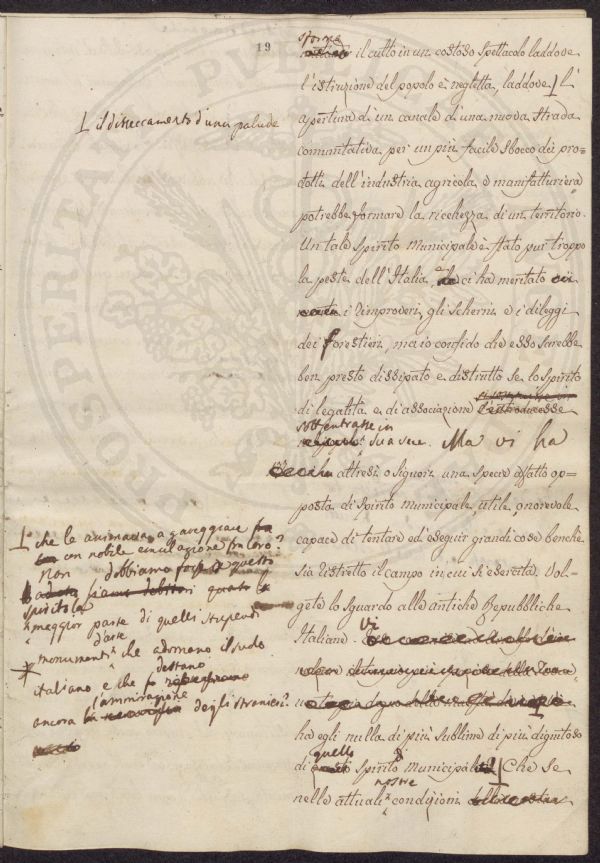 19
sforma
il culto in un costoso spettacolo laddove
l'istruzione del popolo è negletta, laddove l'
⌊ il disseccamento d'una palude
apertura di un canale di una nuova strada
comunitativa per un più facile sbocco dei pro=
dotti dell'industria agricola e manifatturiera
potrebbe formare la ricchezza di un territorio.
Un tale spirito municipale è stato pur troppo
la peste dell'Italia, e ci ha meritato
i rimproveri, gli scherni e i dileggi
dei forestieri, ma io confido che esso sarebbe
ben presto dissipato e distrutto se lo spirito
di legalità e di associazione l'introducesse
sottentrasse in
sua vece. Ma vi ha
altresì o Signori una specie affatto op=
posta di spirito municipale utile, onorevole
capace di tentare ed eseguir grandi cose benchè
sia ristretto il campo in cui si esercita. Vol=
gete lo sguardo alle antiche Repubbliche
Italiane. Vi
ha egli nulla di più sublime di più dignitoso
di quello spirito municipale
che le animava a gareggiare
con nobile emulazione fra loro?
Non dobbiamo forse a questo
spirito la
maggior parte di quelli stupendi
monumenti d'arte che adornano il suolo
italiano e che destano
ancora l'ammirazione degli stranieri?
Che se
nelle attuali nostre condizioni